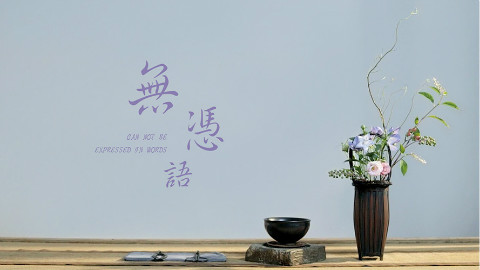 無憑語
CAN NOT BE
EXPRESSED BY WORDS